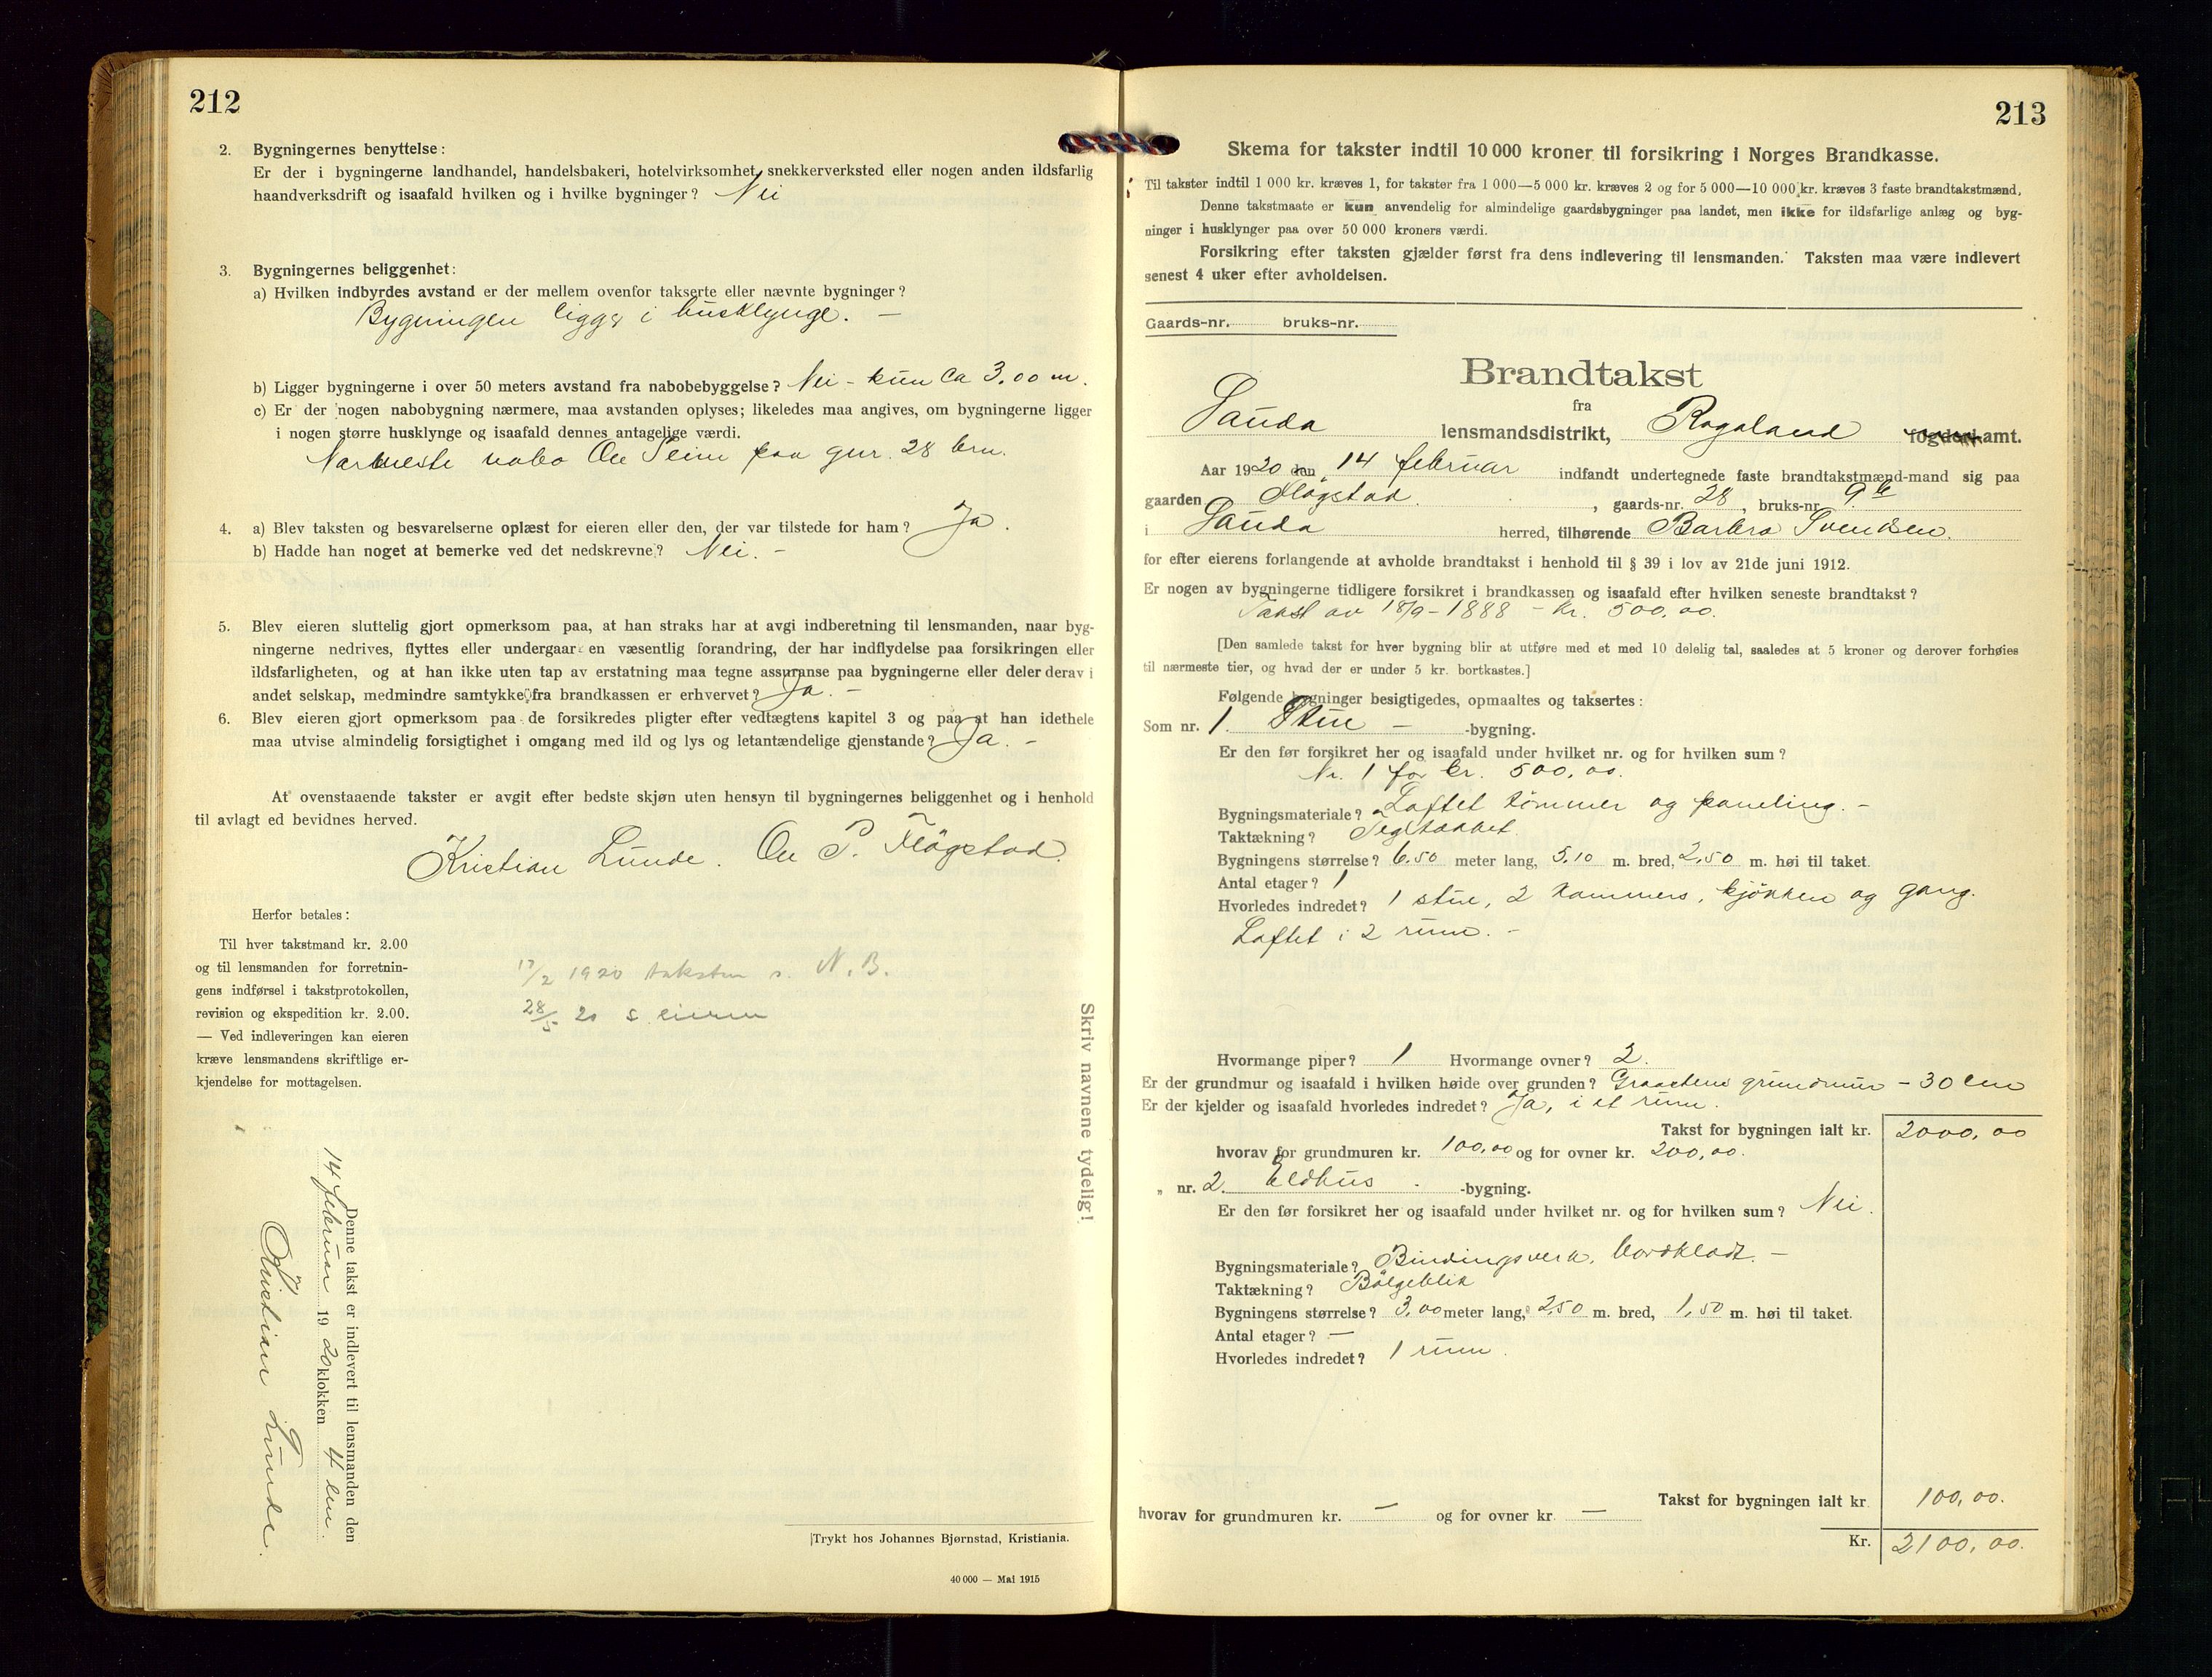 212
2. Bygningernes benyttelse:
Er der i bygningerne landhandel, handelsbakeri, hotelvirksomhet, snekkerverksted eller nogen anden ildsfarlig
haandverksdrift og isaafald hvilken og i hvilke bygninger? Nei
3. Bygningernes beliggenhet:
a) Hvilken indbyrdes avstand er der mellem ovenfor takserte eller nævnte bygninger?
Bygningen ligger i husklynge. —
b) Ligger bygningerne i over 50 meters avstand fra nabobebyggelse? Nei - kun ca 3,00 m.
c) Er der nogen nabobygning nærmere, maa avstanden oplyses; likeledes maa angives, om bygningerne ligger
i nogen større husklynge og isaafald dennes antagelige værdi.
Nærmeste nabo Ole Seim paa gnr. 28 brn.
4. a) Blev taksten og besvarelserne oplæst for eieren eller den, der var tilstede for ham? Ja.
b) Hadde han noget at bemerke ved det nedskrevne? Nei. -
5. Blev eieren sluttelig gjort opmerksom paa, at han straks har at avgi indberetning til lensmanden, naar byg-
ningerne nedrives, flyttes eller undergaar en væsentlig forandring, der har indflydelse paa forsikringen eller
ildsfarligheten, og at han ikke uten tap av erstatning maa tegne assuranse paa bygningerne eller deler derav i
andet selskap, medmindre samtykke fra brandkassen er erhvervet? Ja. -
6. Blev eieren gjort opmerksom paa de forsikredes pligter efter vedtægtens kapitel 3 og paa at han idethele
maa utvise almindelig forsigtighet i omgang med ild og lys og letantændelige gjenstande? Ja. -
At ovenstaaende takster er avgit efter bedste skjøn uten hensyn til bygningernes beliggenhet og i henhold
til avlagt ed bevidnes herved.
Kristian Lunde. Ole P. Fløgstad.
Herfor betales:
Til hver takstmand kr. 2.00
og til lensmanden for forretnin-
gens indførsel i takstprotokollen,
revision og ekspedition kr. 2.00.
— Ved indleveringen kan eieren
kræve lensmandens skriftlige er-
kjendelse for mottagelsen.
17/2 1920 taksten s. N. B.
28/5 20 s eieren
Skriv navnene tydelig!
Denne takst er indlevert til lensmanden den
14 februar 1920 klokken 4 em.
Kristian Lunde.
Trykt hos Johannes Bjørnstad, Kristiania.
40 000 — Mai 1915
213
Skema for takster indtil 10 000 kroner til forsikring i Norges Brandkasse.
Til takster indtil 1 000 kr. kræves 1, for takster fra 1 000—5 000 kr. kræves 2 og for 5 000—10 000 kr. kræves 3 faste brandtakstmænd.
Denne takstmaate er kun anvendelig for almindelige gaardsbygninger paa landet, men ikke for ildsfarlige anlæg og byg-
ninger i husklynger paa over 50 000 kroners værdi.
Forsikring efter taksten gjælder først fra dens indlevering til lensmanden. Taksten maa være indlevert
senest 4 uker efter avholdelsen.
Gaards-nr. bruks-nr.
Brandtakst
fra
Sauda lensmandsdistrikt, Rogaland fogderi amt.
Aar 1920 den 14 februar indfandt undertegnede faste brandtakstmænd-mand sig paa
gaarden Fløgstad, gaards-nr. 28, bruks-nr. 9 b
i Sauda herred, tilhørende Barbro Svendsen.
for efter eierens forlangende at avholde brandtakst i henhold til § 39 i lov av 21de juni 1912.
Er nogen av bygningerne tidligere forsikret i brandkassen og isaafald efter hvilken seneste brandtakst?
Takst av 18/9 - 1888 - kr. 500,00.
[Den samlede takst for hver bygning blir at utføre med et med 10 delelig tal, saaledes at 5 kroner og derover forhøies
til nærmeste tier, og hvad der er under 5 kr. bortkastes.]
Følgende bygninger besigtigedes, opmaaltes og taksertes:
Som nr. 1. Stue -bygning.
Er den før forsikret her og isaafald under hvilket nr. og for hvilken sum?
Nr. 1 for kr. 500,00.
Bygningsmateriale? Laftet tømmer og paneling. -
Taktækning? Tegltækket.
Bygningens størrelse? 6,50 meter lang, 5,10 m. bred, 2,50 m. høi til taket.
Antal etager? 1
Hvorledes indredet? 1 stue, 2 kammers, kjøkken og gang.
Loftet i 2 rum. -
Hvormange piper? 1 Hvormange ovner? 2.
Er der grundmur og isaafald i hvilken høide over grunden? Graastens grundmur - 30 cm
Er der kjelder og isaafald hvorledes indredet? Ja, i et rum.
Takst for bygningen ialt kr. 2000,00
hvorav for grundmuren kr. 100,00 og for ovner kr. 200,00.
„ nr. 2. Eldhus -bygning.
Er den før forsikret her og isaafald under hvilket nr. og for hvilken sum? Nei.
Bygningsmateriale? Bindingsverk, bordklædt. -
Taktækning? Bølgeblik
Bygningens størrelse? 3,00 meter lang, 2,50 m. bred, 1,50 m. høi til taket.
Antal etager? —
Hvorledes indredet? 1 rum.
Takst for bygningen ialt kr 100,00.
hvorav for grundmuren kr. — og for ovner kr. —
Kr. 2100,00.